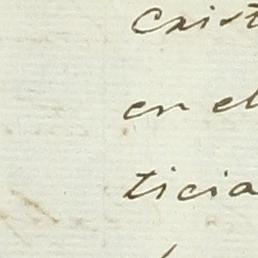 Crist
en el
ticia